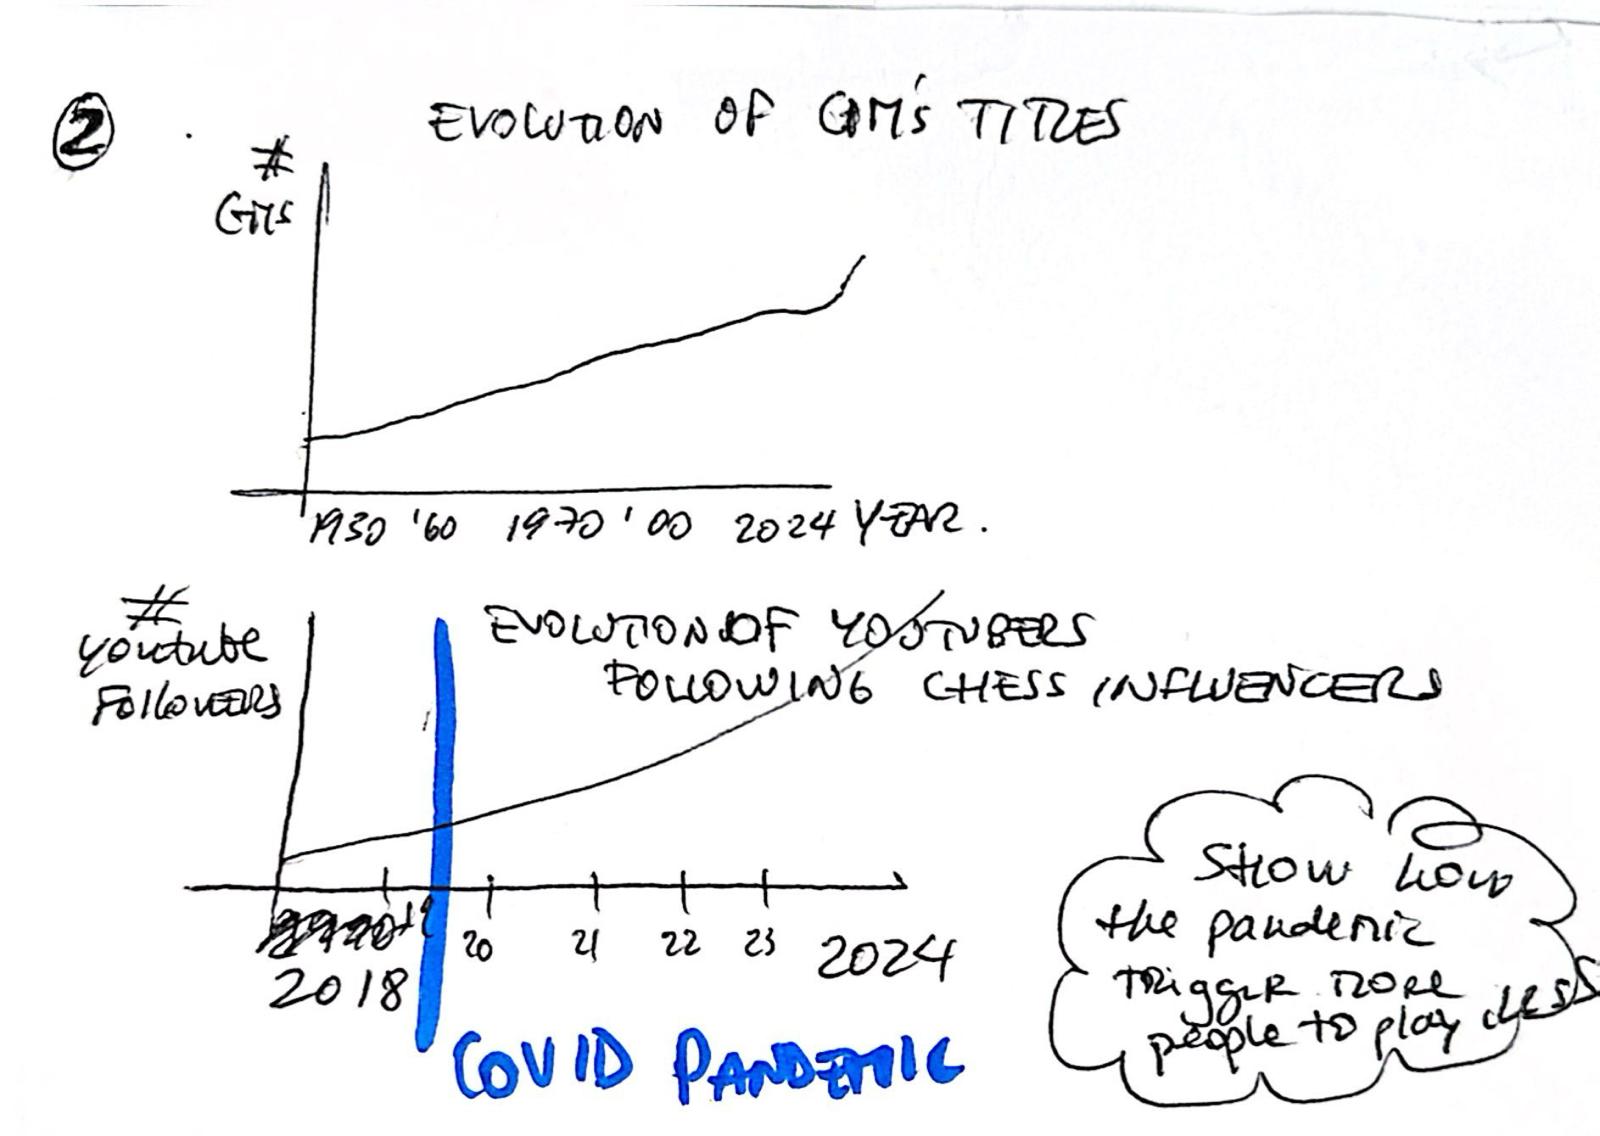 2
EVOLUTION OF GM's TITLES
#
GMs
1930 '60 1970 '00 2024 YEAR.
#
youtube
FOLLOWERS
EVOLUTION OF YOUTUBERS
FOLLOWING CHESS INFLUENCERS
19 20 21 22 23 2024
2018
COVID PANDEMIC
SHOW how
the pandemic
TRIGGER MORE
people to play chess